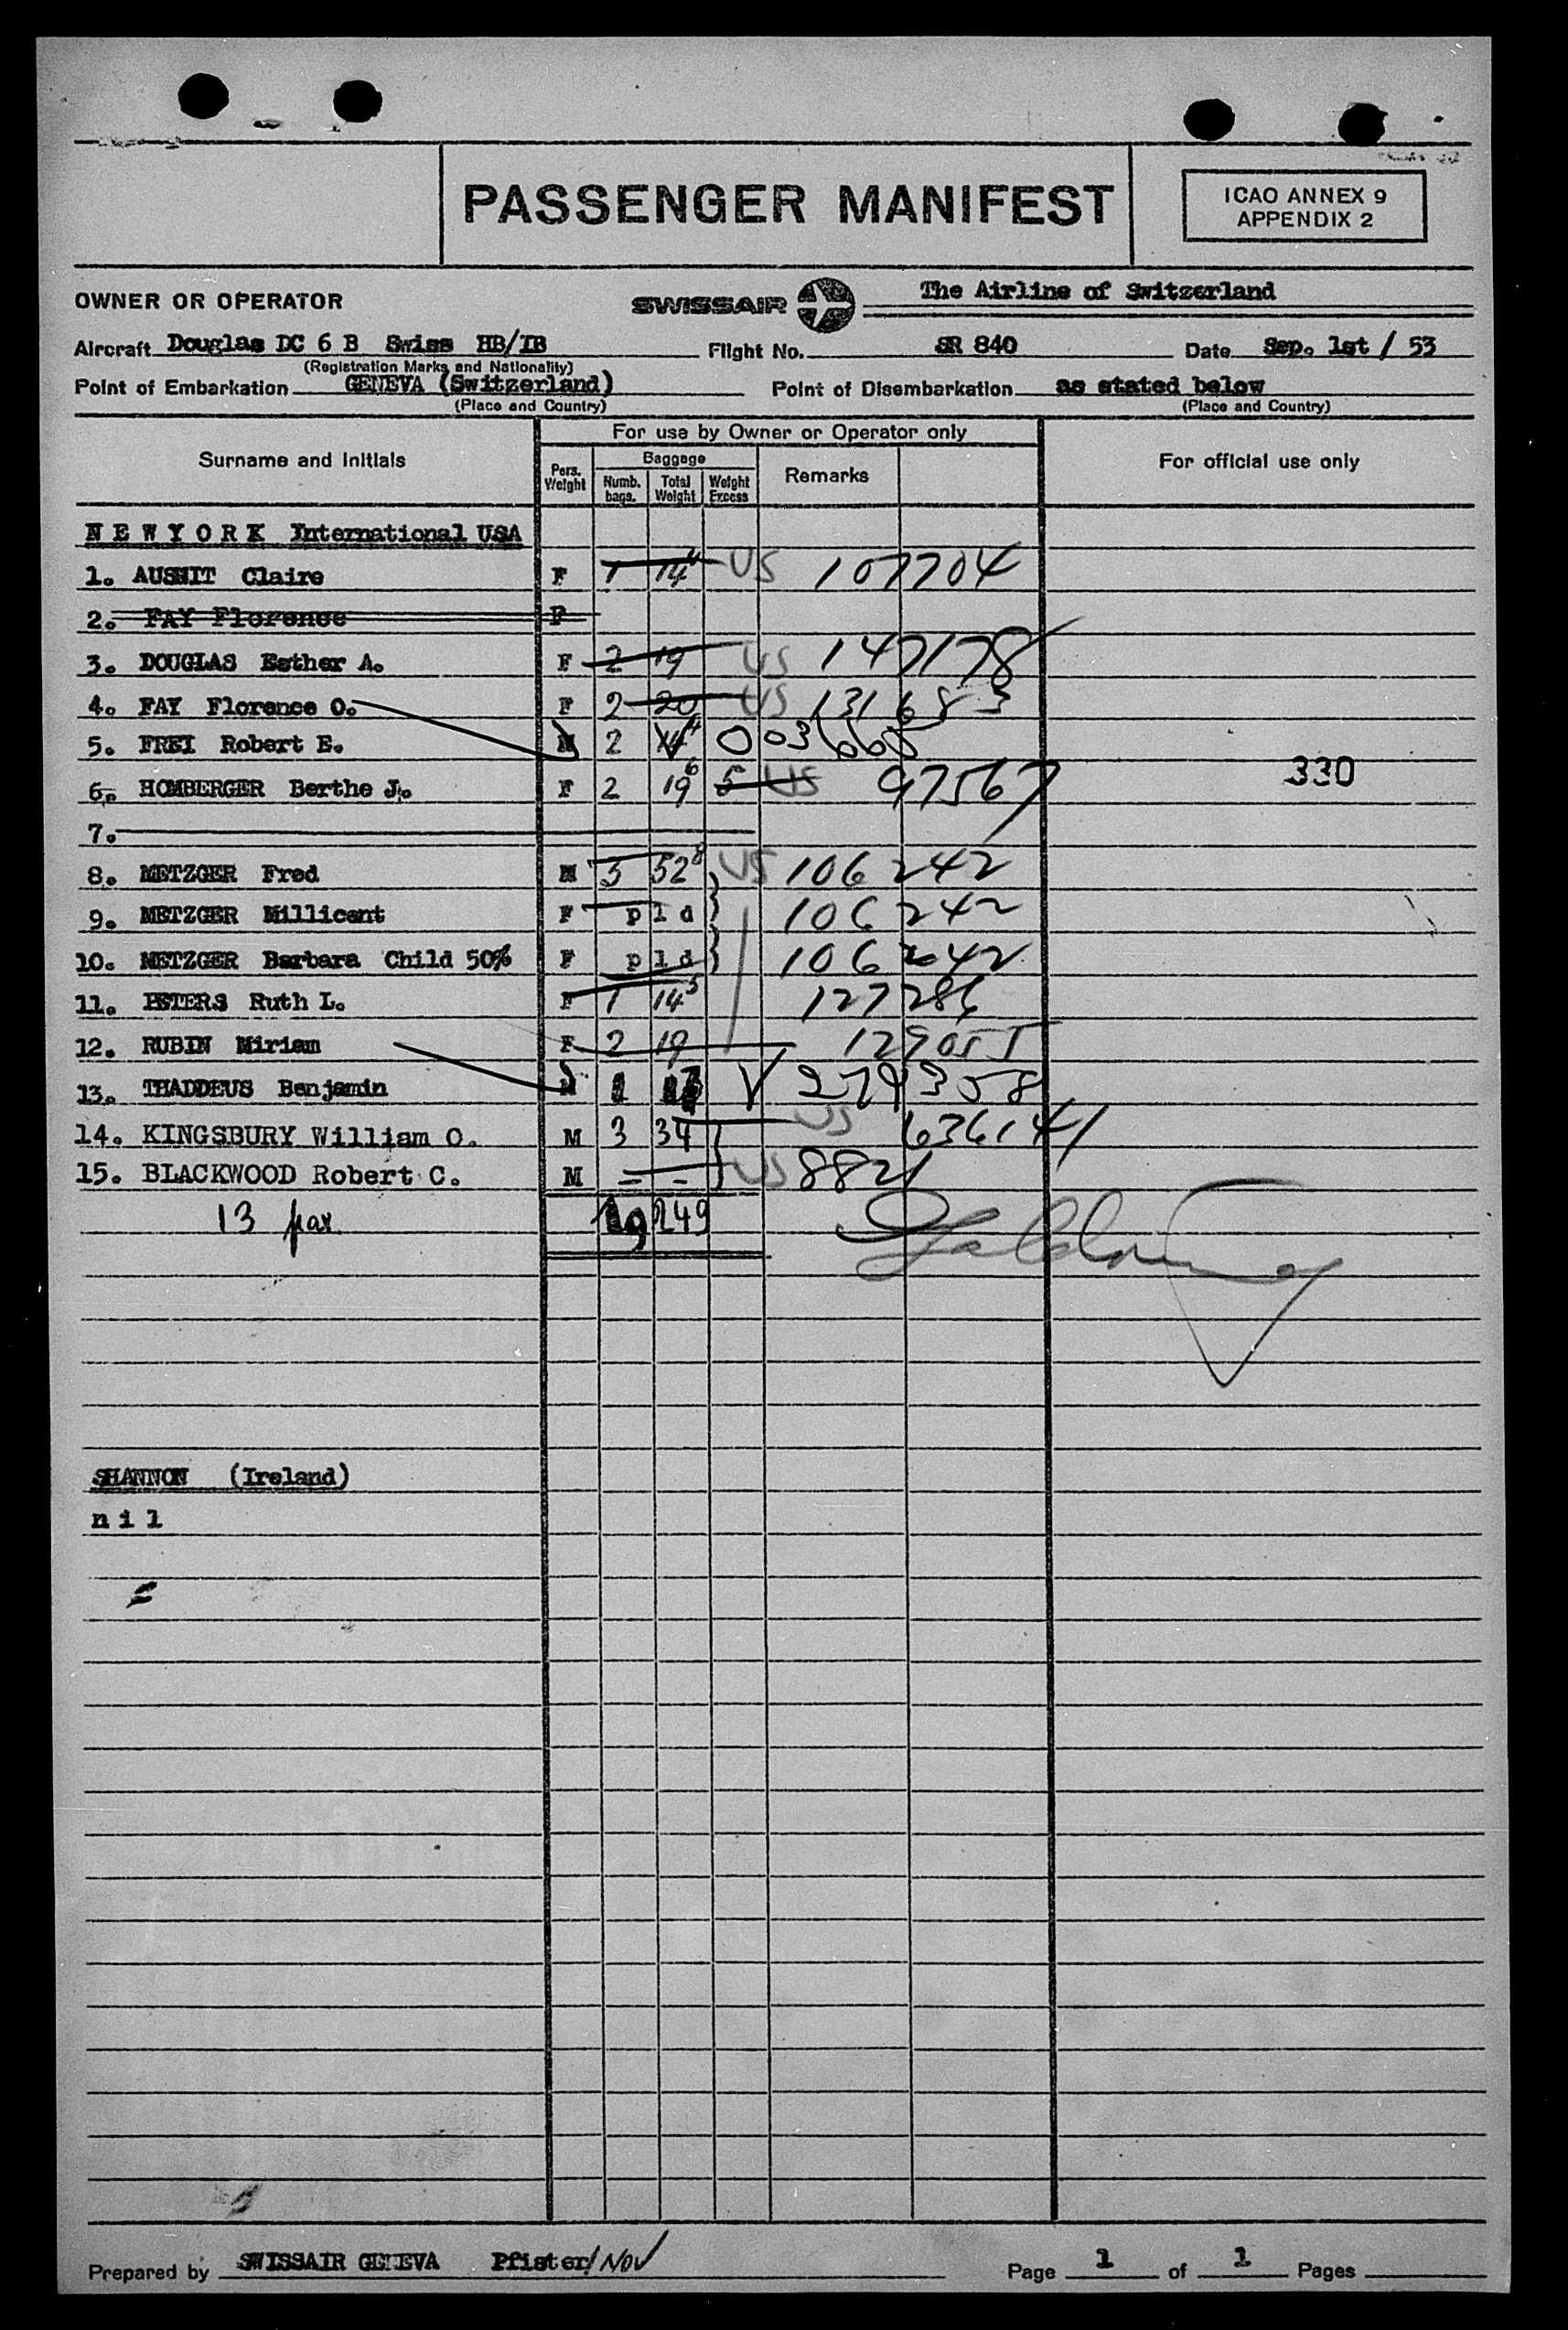 PASSENGER MANIFEST
ICAO ANNEX 9
APPENDIX 2
OWNER OR OPERATOR SWISSAIR The Airline of Switzerland
Aircraft Douglas DC 6 B Swiss HB/IB Flight No. SR 840 Date Sep. 1st / 53
(Registration Marks and Nationality)
Point of Embarkation GENEVA (Switzerland) Point of Disembarkation as stated below
(Place and Country) (Place and Country)
For use by Owner or Operator only
Surname and Initials Pers. Weight Baggage Numb. bags. Total Weight Weight Excess Remarks For official use only
N E W Y O R K International USA
1. AUSNIT Claire F 1 14 US 107704
2. FAY Florence F
3. DOUGLAS Esther A. F 2 19 US 147178
4. FAY Florence O. F 2 20 US 131683
5. FREI Robert E. M 2 14 003666
6. HOMBERGER Berthe J. F 2 19 6 5 US 97567 330
7.
8. METZGER Fred M 5 52 8 US 106242
9. METZGER Millicent F p l d 106242
10. METZGER Barbara Child 50% F p l d 106242
11. PETERS Ruth L. F 1 14 5 127286
12. RUBIN Miriam F 2 19 129055
13. THADDEUS Benjamin M 1 V 279358
14. KINGSBURY William O. M 3 34 US 636141
15. BLACKWOOD Robert C. M - - US 8821
13 pax 19 249
SHANNON (Ireland)
n i l
Prepared by SWISSAIR GENEVA Pfister/Nov Page 1 of 1 Pages